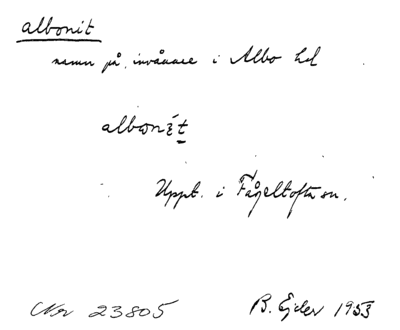 albonit
namn på invånare i Albo hd
albωnít
Uppt. i Fågeltofta sn.
Nr 23805
B. Ejder 1953